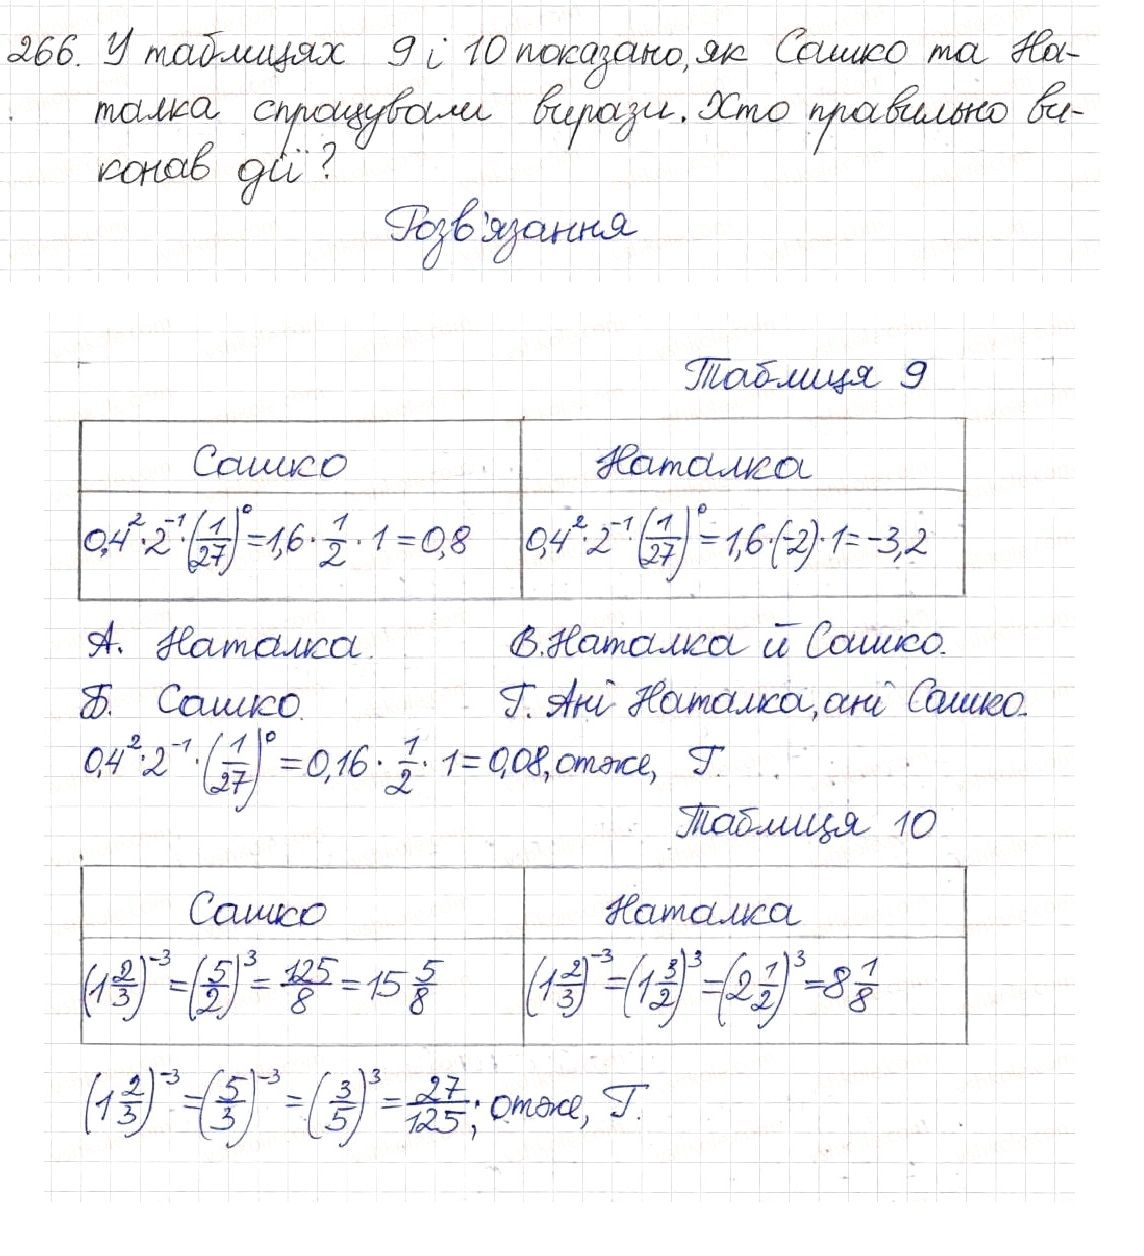 266. У таблицях 9 і 10 показано, як Сашко та На-
талка спрощували вирази. Хто правильно ви-
конав дії?
Розв'язання
Таблиця 9
Сашко Наталка
0,4²·2⁻¹·(1/27)⁰=1,6·1/2·1=0,8 0,4²·2⁻¹·(1/27)⁰=1,6·(-2)·1=-3,2
А. Наталка. В. Наталка й Сашко.
Б. Сашко. Г. Ані Наталка, ані Сашко.
0,4²·2⁻¹·(1/27)⁰=0,16·1/2·1=0,08, отже, Г.
Таблиця 10
Сашко Наталка
(1 2/3)⁻³=(5/2)³=125/8=15 5/8 (1 2/3)⁻³=(1 3/2)³=(2 1/2)³=8 1/8
(1 2/3)⁻³=(5/3)⁻³=(3/5)³=27/125; отже, Г.